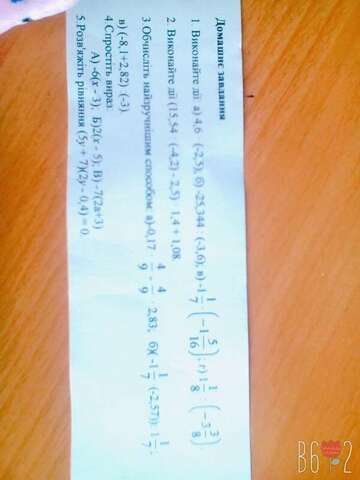 Домашнє завдання
1. Виконайте дії: а) 4,6 · (-2,5); б) -25,344 : (-3,6); в) -1 1/7 · (-1 5/16); г) 1 1/8 : (-3 3/8).
2. Виконайте дії (15,54 : (-4,2) - 2,5) · 1,4 + 1,08.
3. Обчисліть найзручнішим способом: а) -0,17 · 4/9 - 4/9 · 2,83; б) (-1 1/7 · (-2,57)) : 1 1/7;
в) (-8,1+2,82) : (-3).
4. Спростіть вираз:
А) -6(x - 3); Б) 2(x - 5); В) -7(2a+3)
5. Розв'яжіть рівняння (5y + 7)(2y - 0,4) = 0.
В6 2